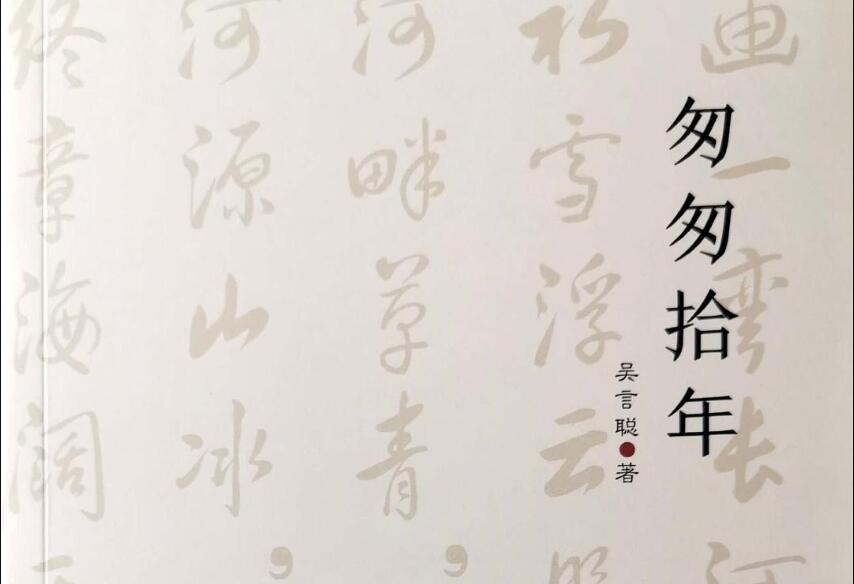 匆匆拾年
吴言聪●著
画一弯长江
松雪浮云
河畔草青，
河源山冰，
终章海阔